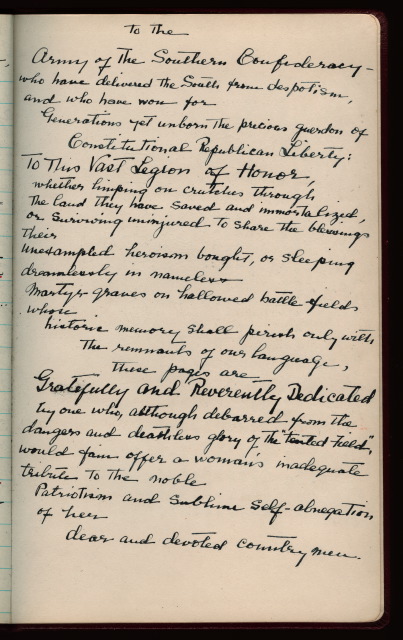 To the
Army of the Southern Confederacy -
who have delivered the South from despotism,
and who have won for
Generations yet unborn the precious guerdon of
Constitutional Republican Liberty:
To This Vast Legion of Honor,
whether limping on crutches through
the land they have saved and immortalized,
or surviving uninjured to share the blessings
their
unexampled heroism bought, or sleeping
dreamlessly in nameless
martyr graves on hallowed battle fields
whose
historic memory shall perish only with
the remnants of our language,
these pages are
Gratefully and Reverently Dedicated
by one who, although debarred from the
dangers and deathless glory of the "tented field",
would fain offer a woman's inadequate
tribute to the noble
Patriotism and sublime self-abnegation
of her
dear and devoted countrymen.